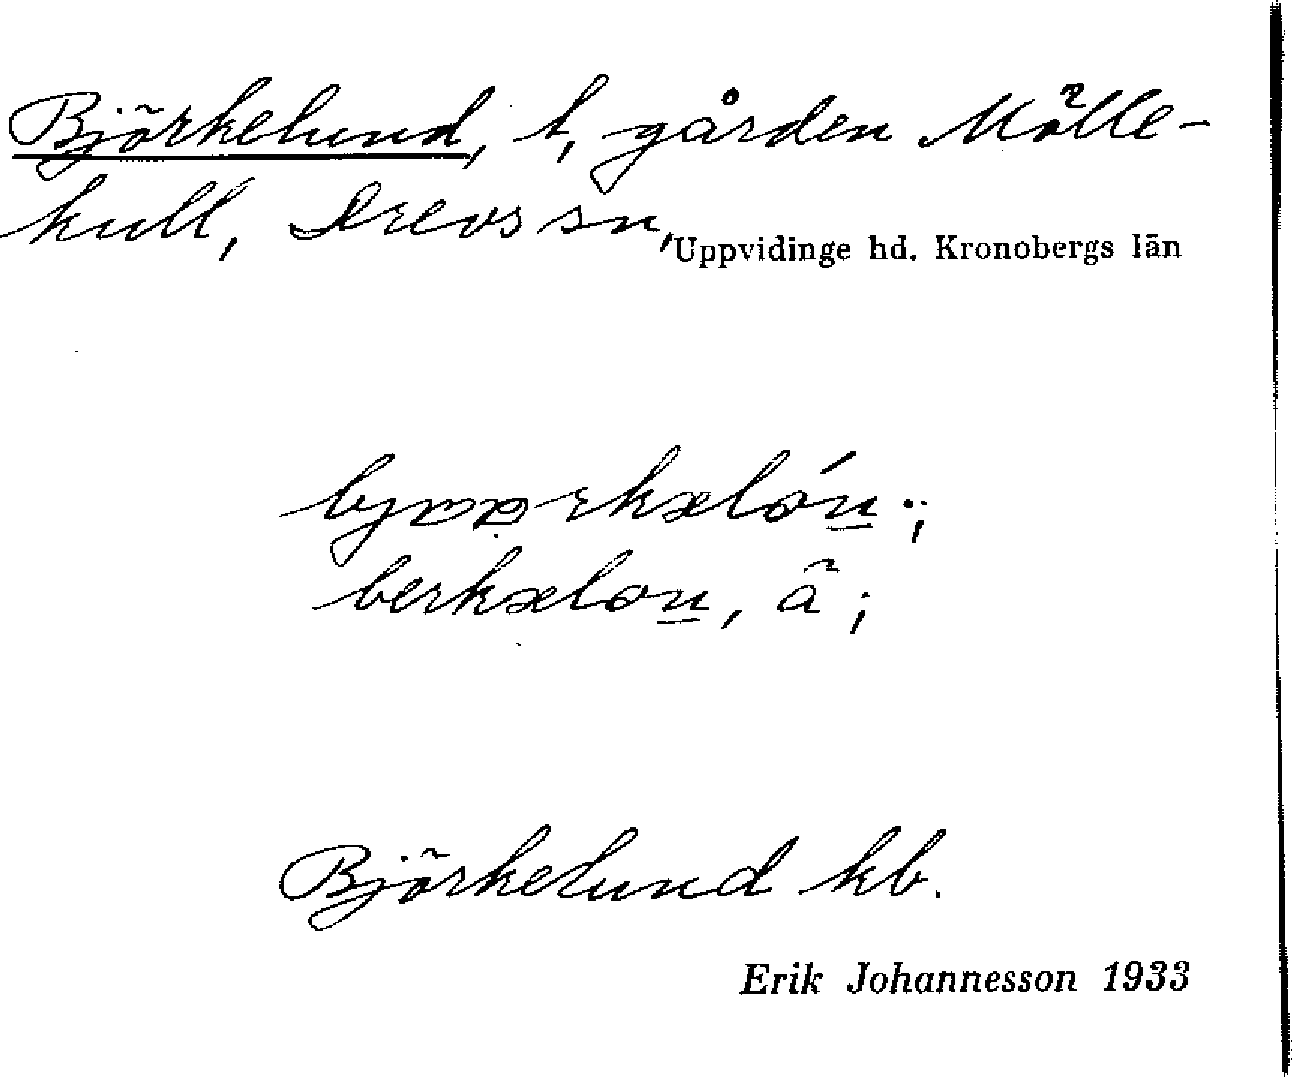 Björkelund, t, gården Mölle-
kull, Drevs sn,
Uppvidinge hd. Kronobergs län
berkəlon, â;
Björkelund kb.
Erik Johannesson 1933